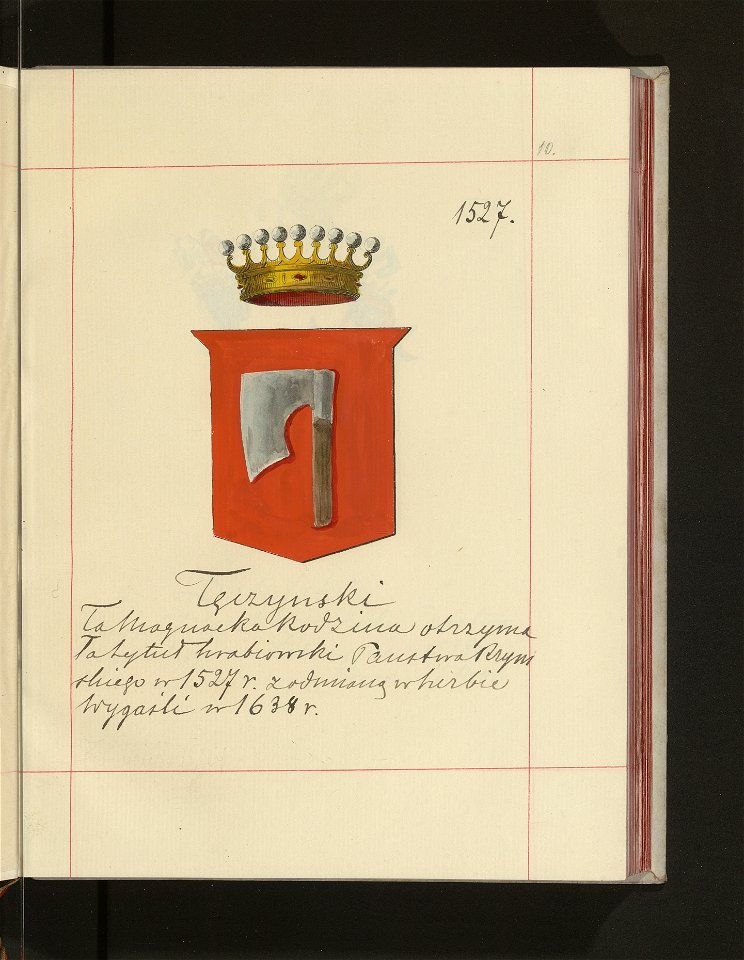 10.
1527.
Tęczynski
Ta Magnacka Rodzina otrzyma
ła tytuł hrabiowski Panstwa Rzym
skiego w 1527 r. z odmianą w herbie
Wygaśli w 1638 r.